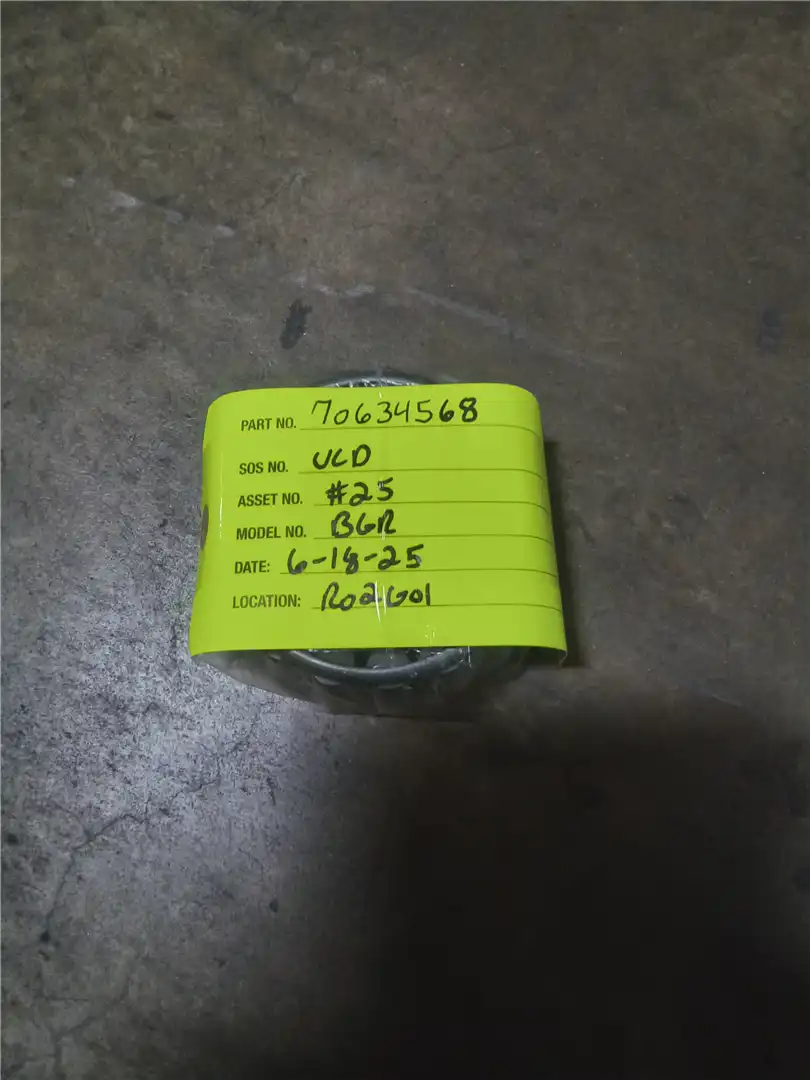 PART NO. 70634568
SOS NO. VCD
ASSET NO. #25
MODEL NO. BGR
DATE: 6-18-25
LOCATION: R02G01